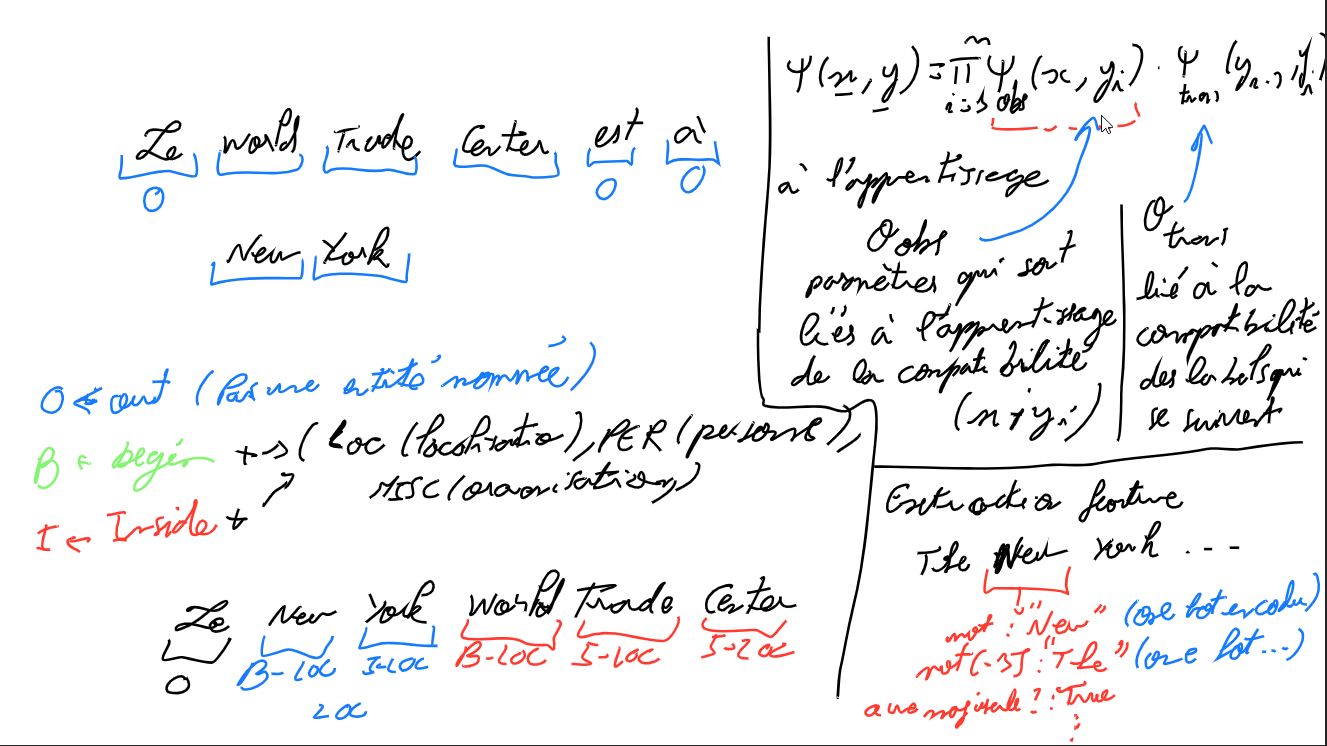 Le World Trade Center est à
O O O
New York
O ← out (Pas une entité nommée)
B ← begin + → (LOC (localisation), PER (personne),
MISC (organisation,)
I ← Inside +
Le New York World Trade Center
O B-LOC I-LOC B-LOC I-LOC I-LOC
LOC
Ψ(x, y) = Π Ψ (x, yi) . Ψ (yi-1, yi)
i=1 obs trans
à l'apprentissage
θ obs
paramètres qui sont
liés à l'apprentissage
de la compatibilité
(x, yi)
θ trans
lié à la
compatibilité
des labels qui
se suivent
Extraction feature
The New York ...
mot : "New" (one hot encoder)
mot[-1] : "The" (one hot...)
a une majuscule ? : True